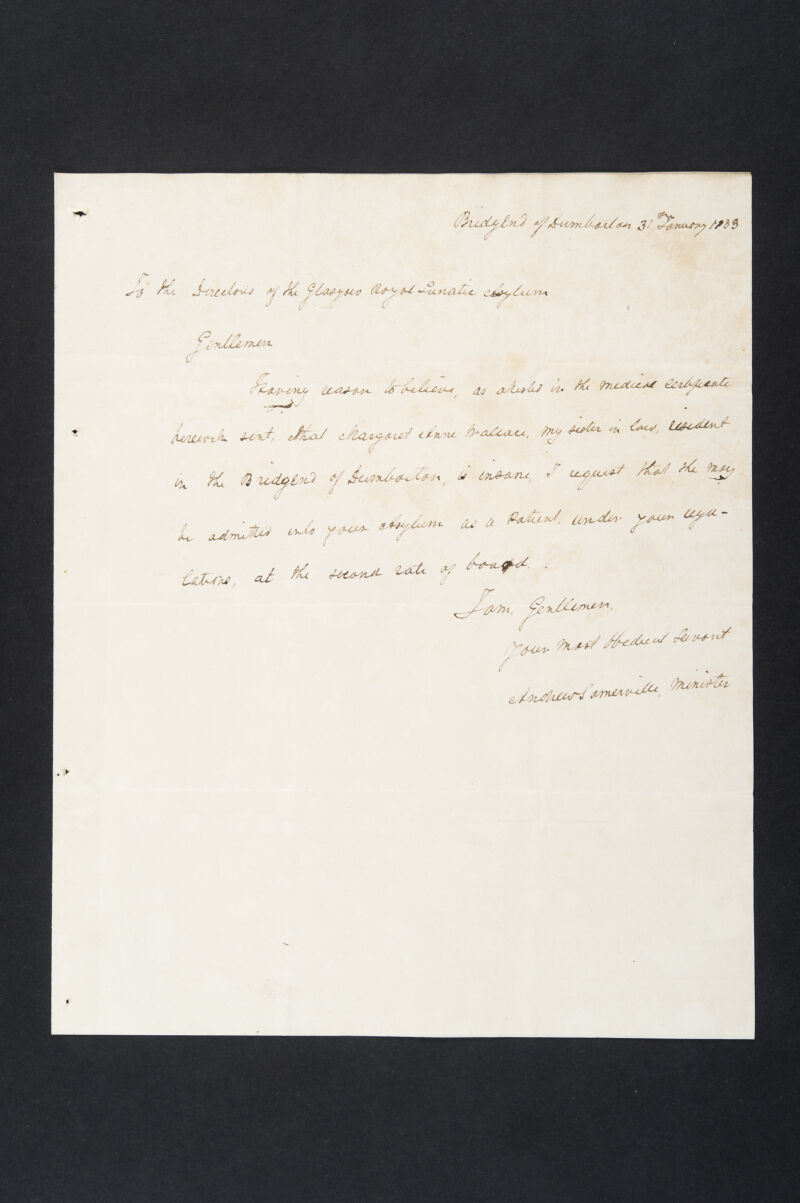 BridgEnd of Dumbarton 31st January 1833
To the Directors of the Glasgow Royal Lunatic Asylum
Gentlemen
Having reason to believe, as atested in the medical certificate
herewith sent, that Margaret Anne Wallace, my sister in law, resident
in the BridgEnd of Dumbarton, is insane, I request that she may
be admitted into your Asylum as a Patient, under your regu-
lations, at the second rate of board.
I am, Gentlemen,
your most obedient Servant
Andrew Somerville, Minister